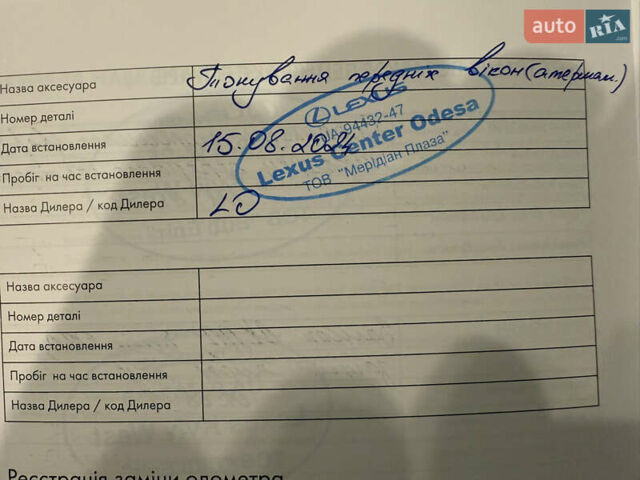 auto RIA.com
Назва аксесуара Тонування передніх вікон (атермал.)
Номер деталі
Дата встановлення 15.08.2024
Пробіг на час встановлення
Назва Дилера / код Дилера LO
LEXUS
UA-94432-47
Lexus Center Odesa
ТОВ "Мерідіан Плаза"
Назва аксесуара
Номер деталі
Дата встановлення
Пробіг на час встановлення
Назва Дилера / код Дилера
Реєстрація заміни одометра